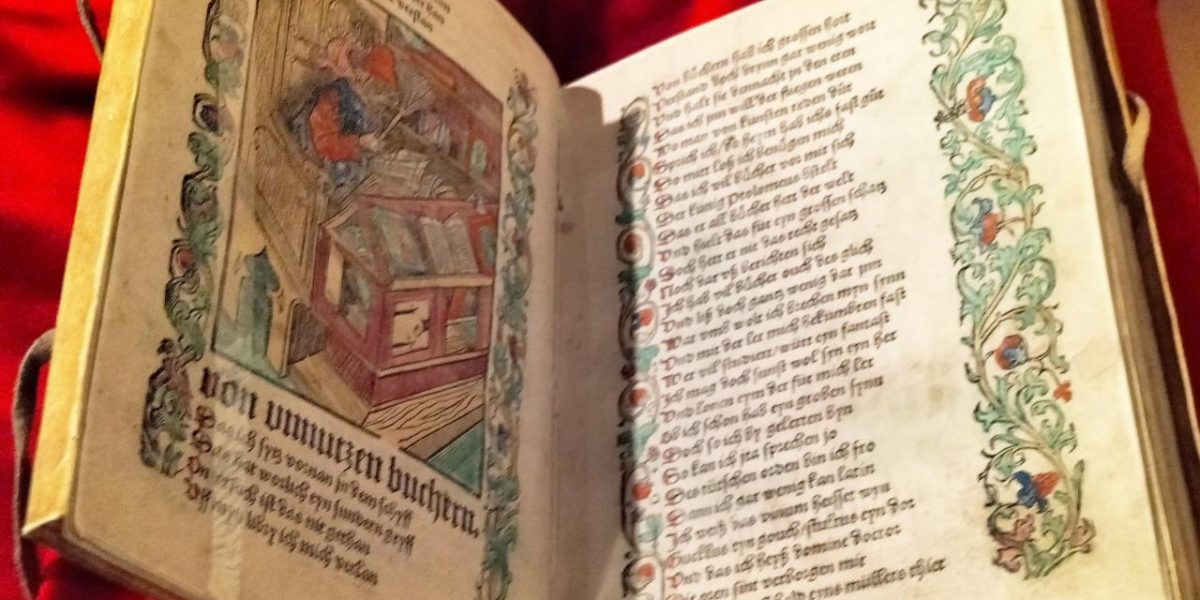 von vnnutzen buchern.
Das ich sytz vornan jn dem schyff
Das hat worlich eyn sundern gryff
On vrsach ist das nit gethan
Vff myn libry ich mich verlan
Von büchern hab ich grossen hort
Verstand doch drynn gar wenig wort
Vnd halt sie dennacht jn den eren
Das ich jnn will der fliegen weren
Wo man von künsten reden düt
Sprich ich / do heym hab ichs fast güt
Do mit loß ich benügen mich
Das ich vil bücher vor mir sich
Der künig Ptolomeus bstelt
Das er all bücher hett der welt
Vnd hielt das für eyn grossen schatz
Doch hatt er nit das recht gesatz
Noch dar vß berichten sich
Ich hab vil bücher ouch des glich
Vnd liß doch gantz wenig dar jnn
War vmb wolt ich brechen myn synn
Vnd mit der ler mich bekumbren fast
Wer vil studiert / würt eyn fantast
Ich mag doch sunst wol syn eyn her
Vnd lonen eym der für mich ler
Ob ich schon hab eyn groben synn
Doch so ich by gelerten byn
So kan ich jta sprechen jo
Des tütschen orden bin ich fro
Dann ich gar wenig kan latin
Ich weiß das vinum heisset wyn
Gucklus eyn gouch / stultus eyn dor
Vnd das ich heyß domine doctor
Die oren sint verborgen mir
bald eyns müllers thier